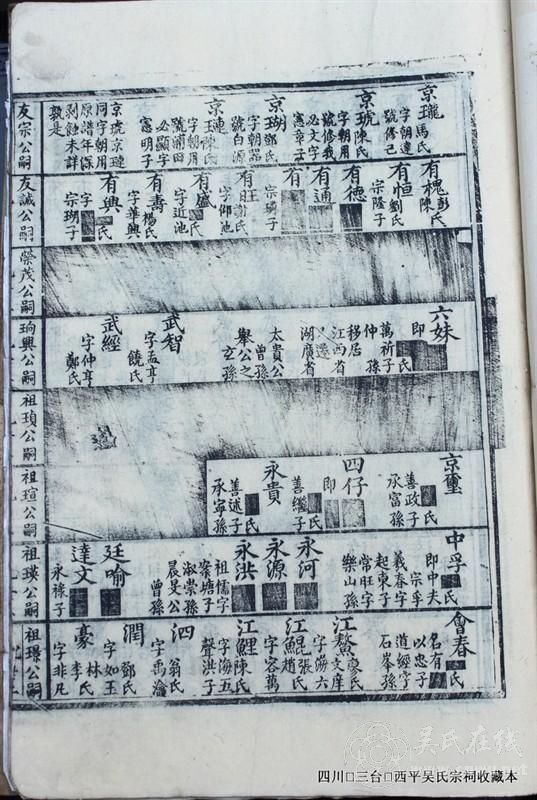 友宗公嗣
京瓏馬氏
字朝達
號修己
京琥陳氏
字朝用
號修我
必文字
憲章子
京瑚鄭氏
字朝器
號白源
京璉陳氏
字朝用
號浦田
必顯字
憲明子
京琥京璉
同字朝用
原譜年深
剥蝕未詳
孰是
友誠公嗣
有槐彭氏
陳
有恒劉氏
宗隆子
有德
有通
有
宗璘子
有旺謝氏
字仰池
有盛氏
字近池
有壽楊氏
字華興
有興氏
字
宗瑚子
榮茂公嗣
珣興公嗣
六妹
即
萬祈子氏
仲孫
移居
江西省
又遷
湖廣省
太貴公
曾孫
舉公之
玄孫
武智
字孟亨
饒氏
武經
字仲亨
鄭氏
祖瑱公嗣
祖瑄公嗣
京璽
善政子氏
承富孫
四仔
即
善繼子氏
永貴
善述子氏
承寧孫
祖瑛公嗣
中孚氏
即中夫
宗孚
義春字
起東子
常旺字
樂山孫
永河
永源
永洪
祖懦字
案塘子
淑崇孫
晨旻公
曾孫
廷喻
達文
永祿子
祖璟公嗣
會春氏
名有
以忠子
道經字
石峯孫
江鰲廖氏
文席
字海六
江鯤張氏
趙
字容萬
江鯉陳氏
字海五
聲洪子
泗翁氏
字禹瀹
潤鄧氏
字如玉
豪林氏
李
字非凡
吴氏在线
四川 三台 西平吴氏宗祠收藏本